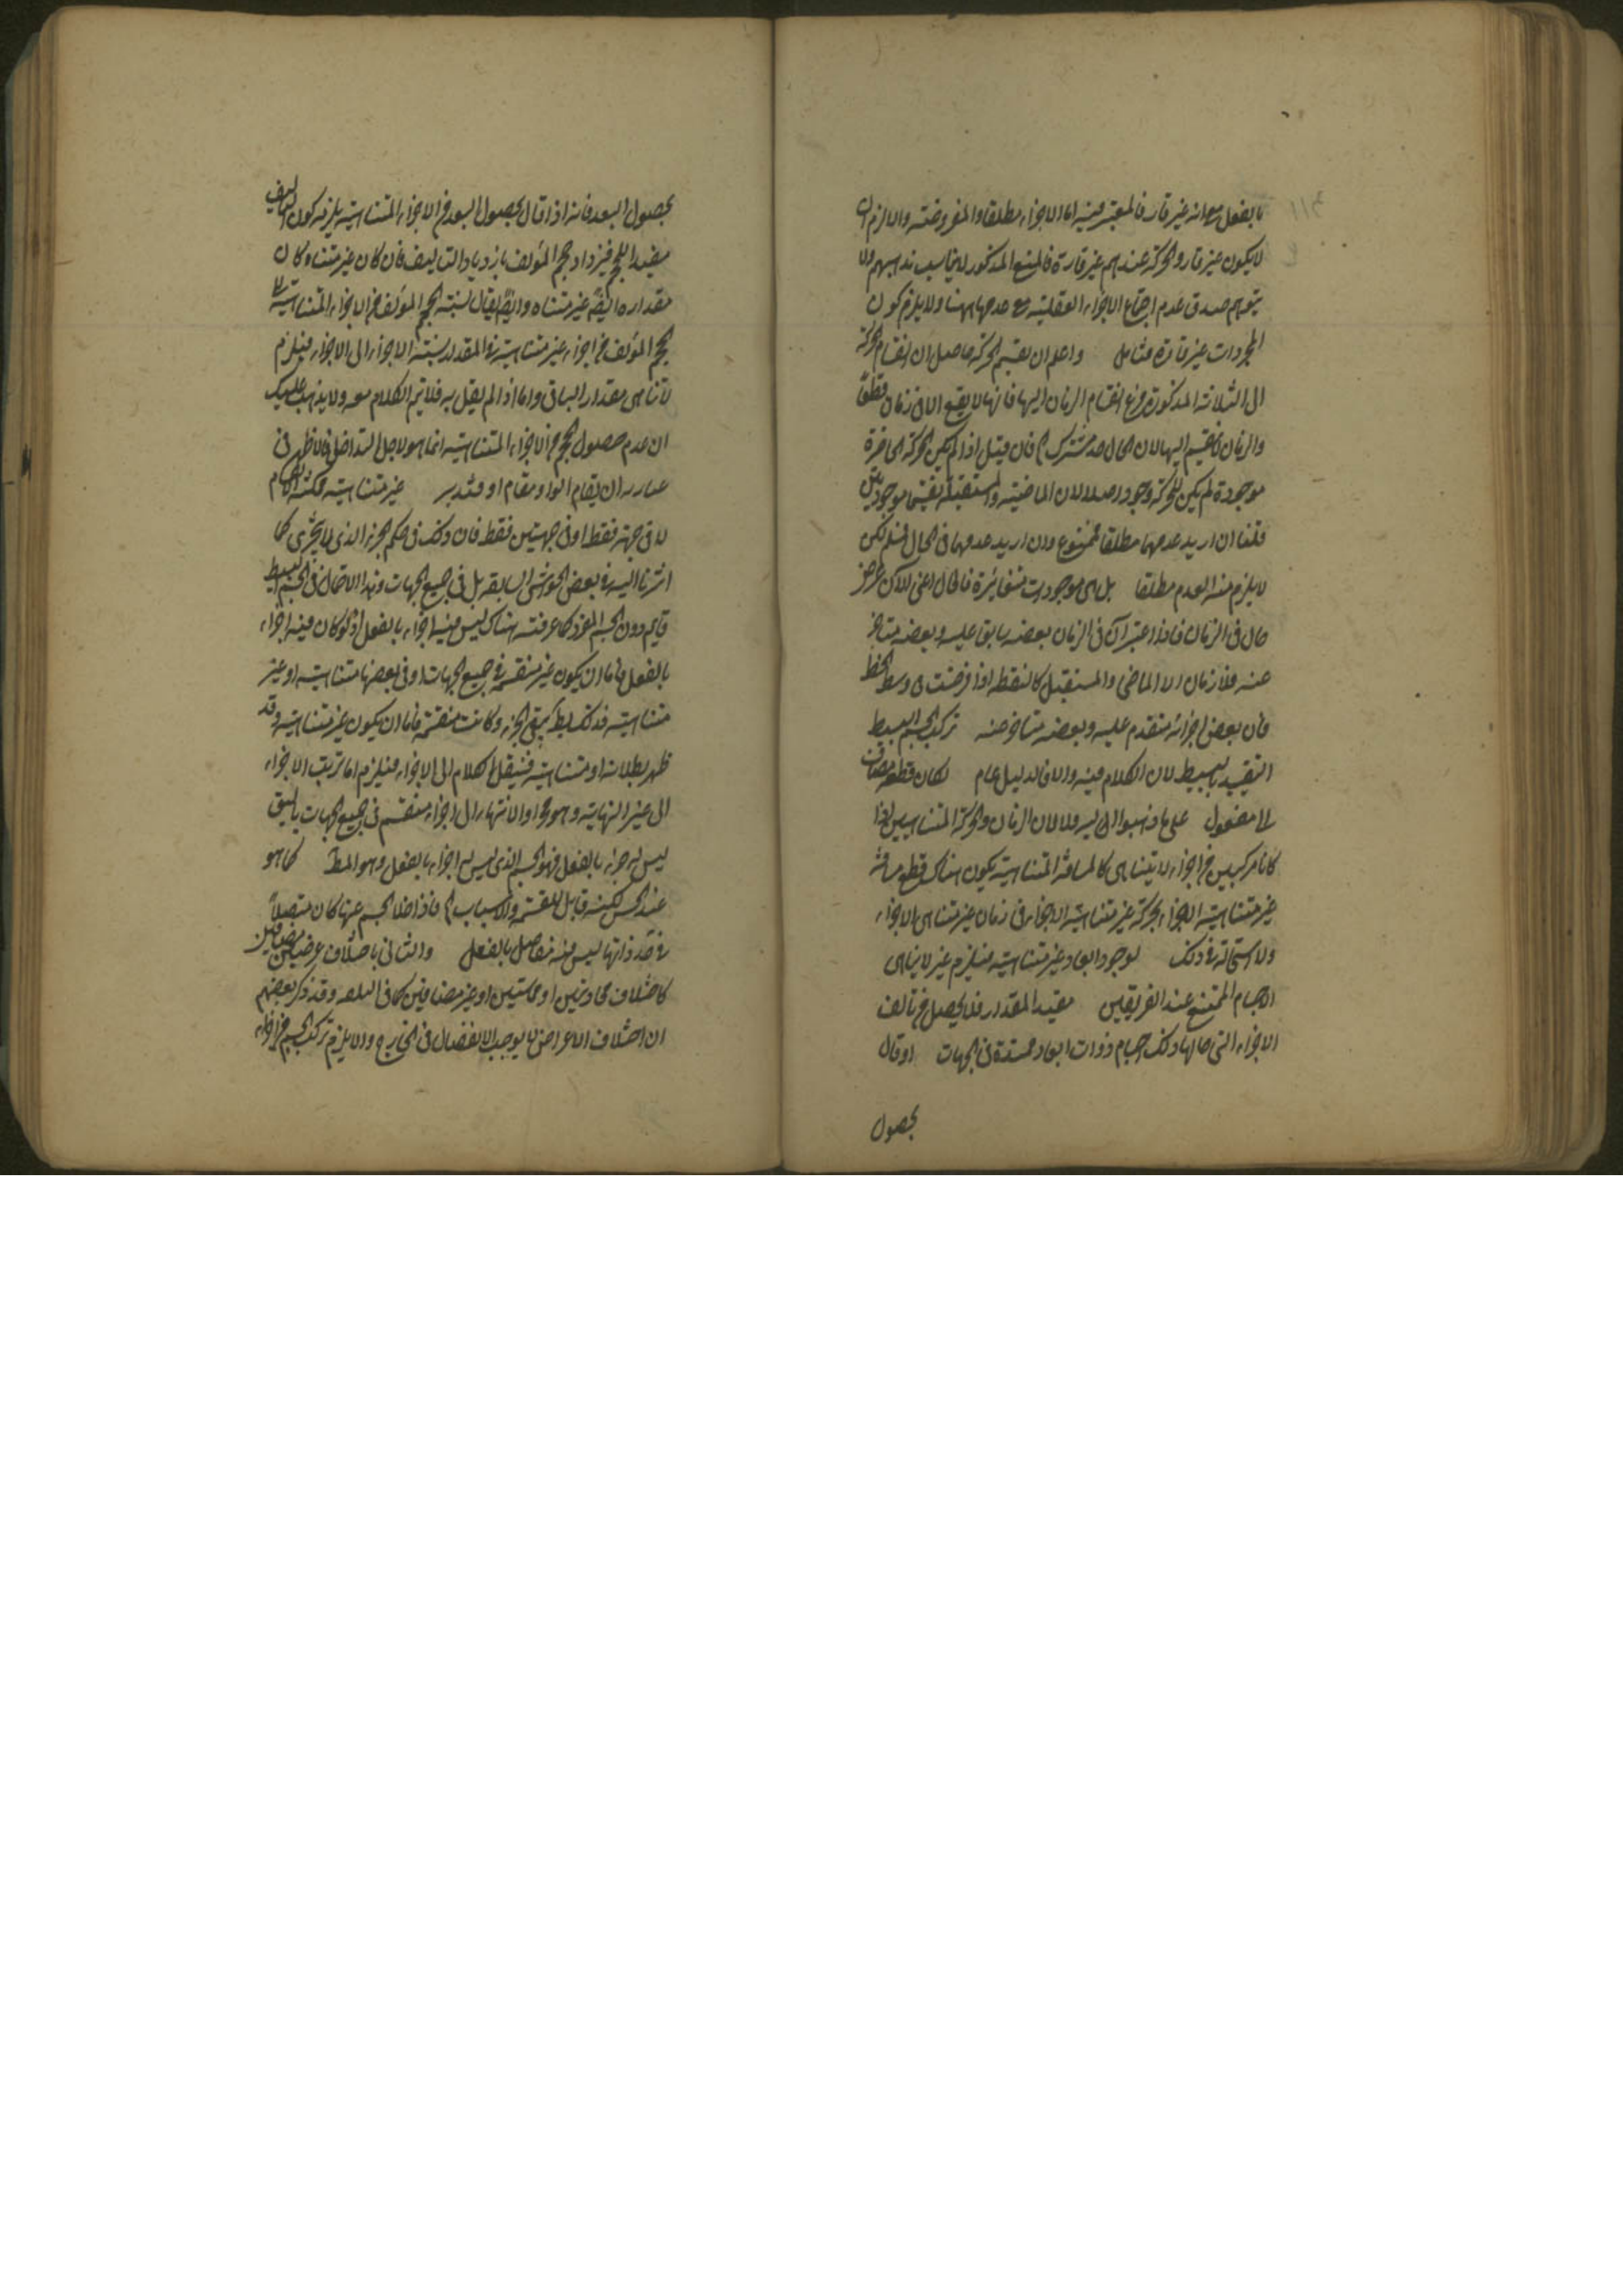 بالفعل مع انه غير قار فالمعتبر فيه اما الاجزاء مطلقا والمفروضة والا لزم ان
لا يكون غير قار والحركة عندهم غير قارة فالمنع المذكور لا يناسب مذهبهم ولا
يتوهم صدق عدم اجتماع الاجزاء العقلية مع عدمها ههنا ولا يلزم كون
المجردات غير قارة فتامل واعلم ان تقسيم الحركة حاصل ان انقسام الحركة
الى الثلاثة المذكورة فرع انقسام الزمان اليها فانها لا يقع الا في زمان قطعا
والزمان لا ينقسم اليها لان الحال حد مشترك فان قيل اذا لم يكن الحركة الحاضرة
موجودة لم يكن للحركة وجود اصلا لان الماضية والمستقبلة ليستا موجودتين
قلنا ان اريد عدمهما مطلقا فممنوع وان اريد عدمهما في الحال فمسلم لكن
لا يلزم منه العدم مطلقا بل هي موجودات متغايرة فالحال اعني الآن عرض
حال في الزمان فاذا اعتبر آن في الزمان بعضه سابق عليه وبعضه متاخر
عنه فلا زمان الا الماضي والمستقبل كالنقطة اذا فرضت في وسط الخط
فان بعض اجزائه متقدم عليه وبعضه متاخر عنه تركب الجسم البسيط
التقييد بالبسيط لان الكلام فيه والا فالدليل عام لكان قطعه مضاف
الى مفعول على ما ذهبوا اليه لان الزمان والحركة المتناهيين اذا
كانا مركبين من اجزاء لا يتناهى كالمسافة المتناهية يكون هناك قطع مسافة
غير متناهية الاجزاء بحركة غير متناهية الاجزاء في زمان غير متناهي الاجزاء
ولا استحالة في ذلك لوجود ابعاد غير متناهية فيلزم غير لا تناهي
الاجسام الممتنع عند الفريقين مفيد المقدار فلا يحصل من تالف
الاجزاء التي حالها ذلك اجسام ذوات ابعاد ممتدة في الجهات او قال
بحصول
بحصول البعد فانه اذا قال بحصول البعد من الاجزاء المتناهية يلزمه كون التاليف
مفيدا للحجم فيزداد حجم المؤلف بازدياد التاليف فان كان غير متناه كان
مقداره ايضا غير متناه وايضا يقال نسبة الحجم المؤلف من الاجزاء المتناهية الى
الحجم المؤلف من اجزاء غير متناهية في المقدار نسبة الاجزاء الى الاجزاء فيلزم
تناهي مقدار الباقي واما اذا لم يقل به فلا يتم الكلام معه ولا يذهب عليك
ان عدم حصول الحجم من الاجزاء المتناهية انما هو لاجل التداخل فالاظهر في
عبارته ان يقام الواو مقام او فتدبر غير متناهية
لا في جهة فقط او في جهتين فقط فان ذلك في حكم الجزء الذي لا يتجزى كما
اشرنا اليه في بعض الحواشي السابقة بل في جميع الجهات وهذا الاحتمال في الجسم البسيط
قايم دون الجسم المفرد كما عرفته هناك ليس فيه اجزاء بالفعل اذ لو كان فيه اجزاء
بالفعل فاما ان يكون غير منقسمة في جميع الجهات او في بعضها متناهية او غير
متناهية فذلك بط كما بقي الجزء وكانت منقسمة فاما ان يكون غير متناهية وقد
ظهر بطلانه او متناهية فننقل الكلام الى الاجزاء فيلزم اما ترتب الاجزاء
الى غير النهاية وهو مح او الانتهاء الى اجزاء منقسم في جميع الجهات
ليس له جزء بالفعل فهو الجسم الذي ليس له اجزاء بالفعل وهو المط كما هو
عند الحس لكنه قابل للقسمة والاسباب فاذا خلا الجسم عنها كان متصلا
في حد ذاتها ليس فيه مفاصل بالفعل والثاني باختلاف عرضين مضافين
كاختلاف محاذيتين او مماستين او غير مضافين كما في البلقة وقد ذكر بعضهم
ان اختلاف الاعراض لا يوجب الانفصال في الخارج والا يلزم تركب الجسم من اجزاء